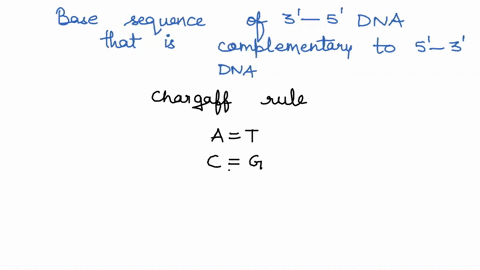 Base sequence of 3'-5' DNA
that is complementary to 5'-3'
DNA
Chargaff rule
A=T
C=G